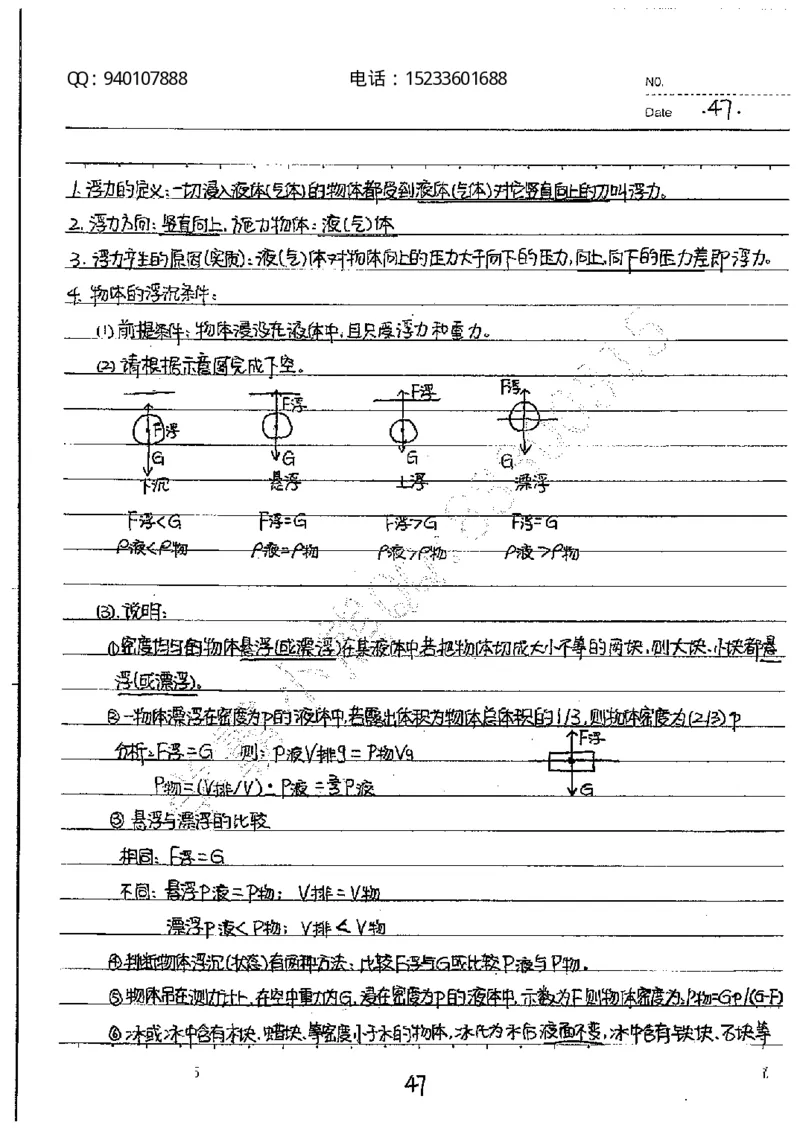 QQ：940107888 电话：15233601688 NO.
Date .47.
1.浮力的定义：一切浸入液体(气体)的物体都受到液体(气体)对它竖直向上的力叫浮力。
2.浮力方向：竖直向上，施力物体：液(气)体
3.浮力产生的原因(实质)：液(气)体对物体向上的压力大于向下的压力，向上、向下的压力差即浮力。
4.物体的浮沉条件：
(1)前提条件：物体浸没在液体中，且只受浮力和重力。
(2)请根据示意图完成下空。
F浮 F浮 F浮 F浮
G G G G
下沉 悬浮 上浮 漂浮
F浮<G F浮=G F浮>G F浮=G
ρ液<ρ物 ρ液=ρ物 ρ液>ρ物 ρ液>ρ物
(3).说明：
①密度均匀的物体悬浮(或漂浮)在某液体中若把物体切成大小不等的两块，则大块、小块都悬
浮(或漂浮)。
②一物体漂浮在密度为ρ的液体中，若露出体积为物体总体积的1/3，则物体密度为(2/3)ρ
分析：F浮=G 则：ρ液V排g=ρ物Vg
F浮
G
ρ物=(V排/V)·ρ液=⅔ρ液
③悬浮与漂浮的比较
相同：F浮=G
不同：悬浮ρ液=ρ物；V排=V物
漂浮ρ液<ρ物；V排<V物
④判断物体浮沉(状态)有两种方法：比较F浮与G或比较ρ液与ρ物.
⑤物体吊在测力计上，在空中重力为G，浸在密度为ρ的液体中，示数为F则物体密度为：ρ物=Gρ/(G-F)
⑥冰或冰中含有木块、蜡块、等密度小于水的物体，冰化为水后液面不变，冰中含有铁块、石块等
47